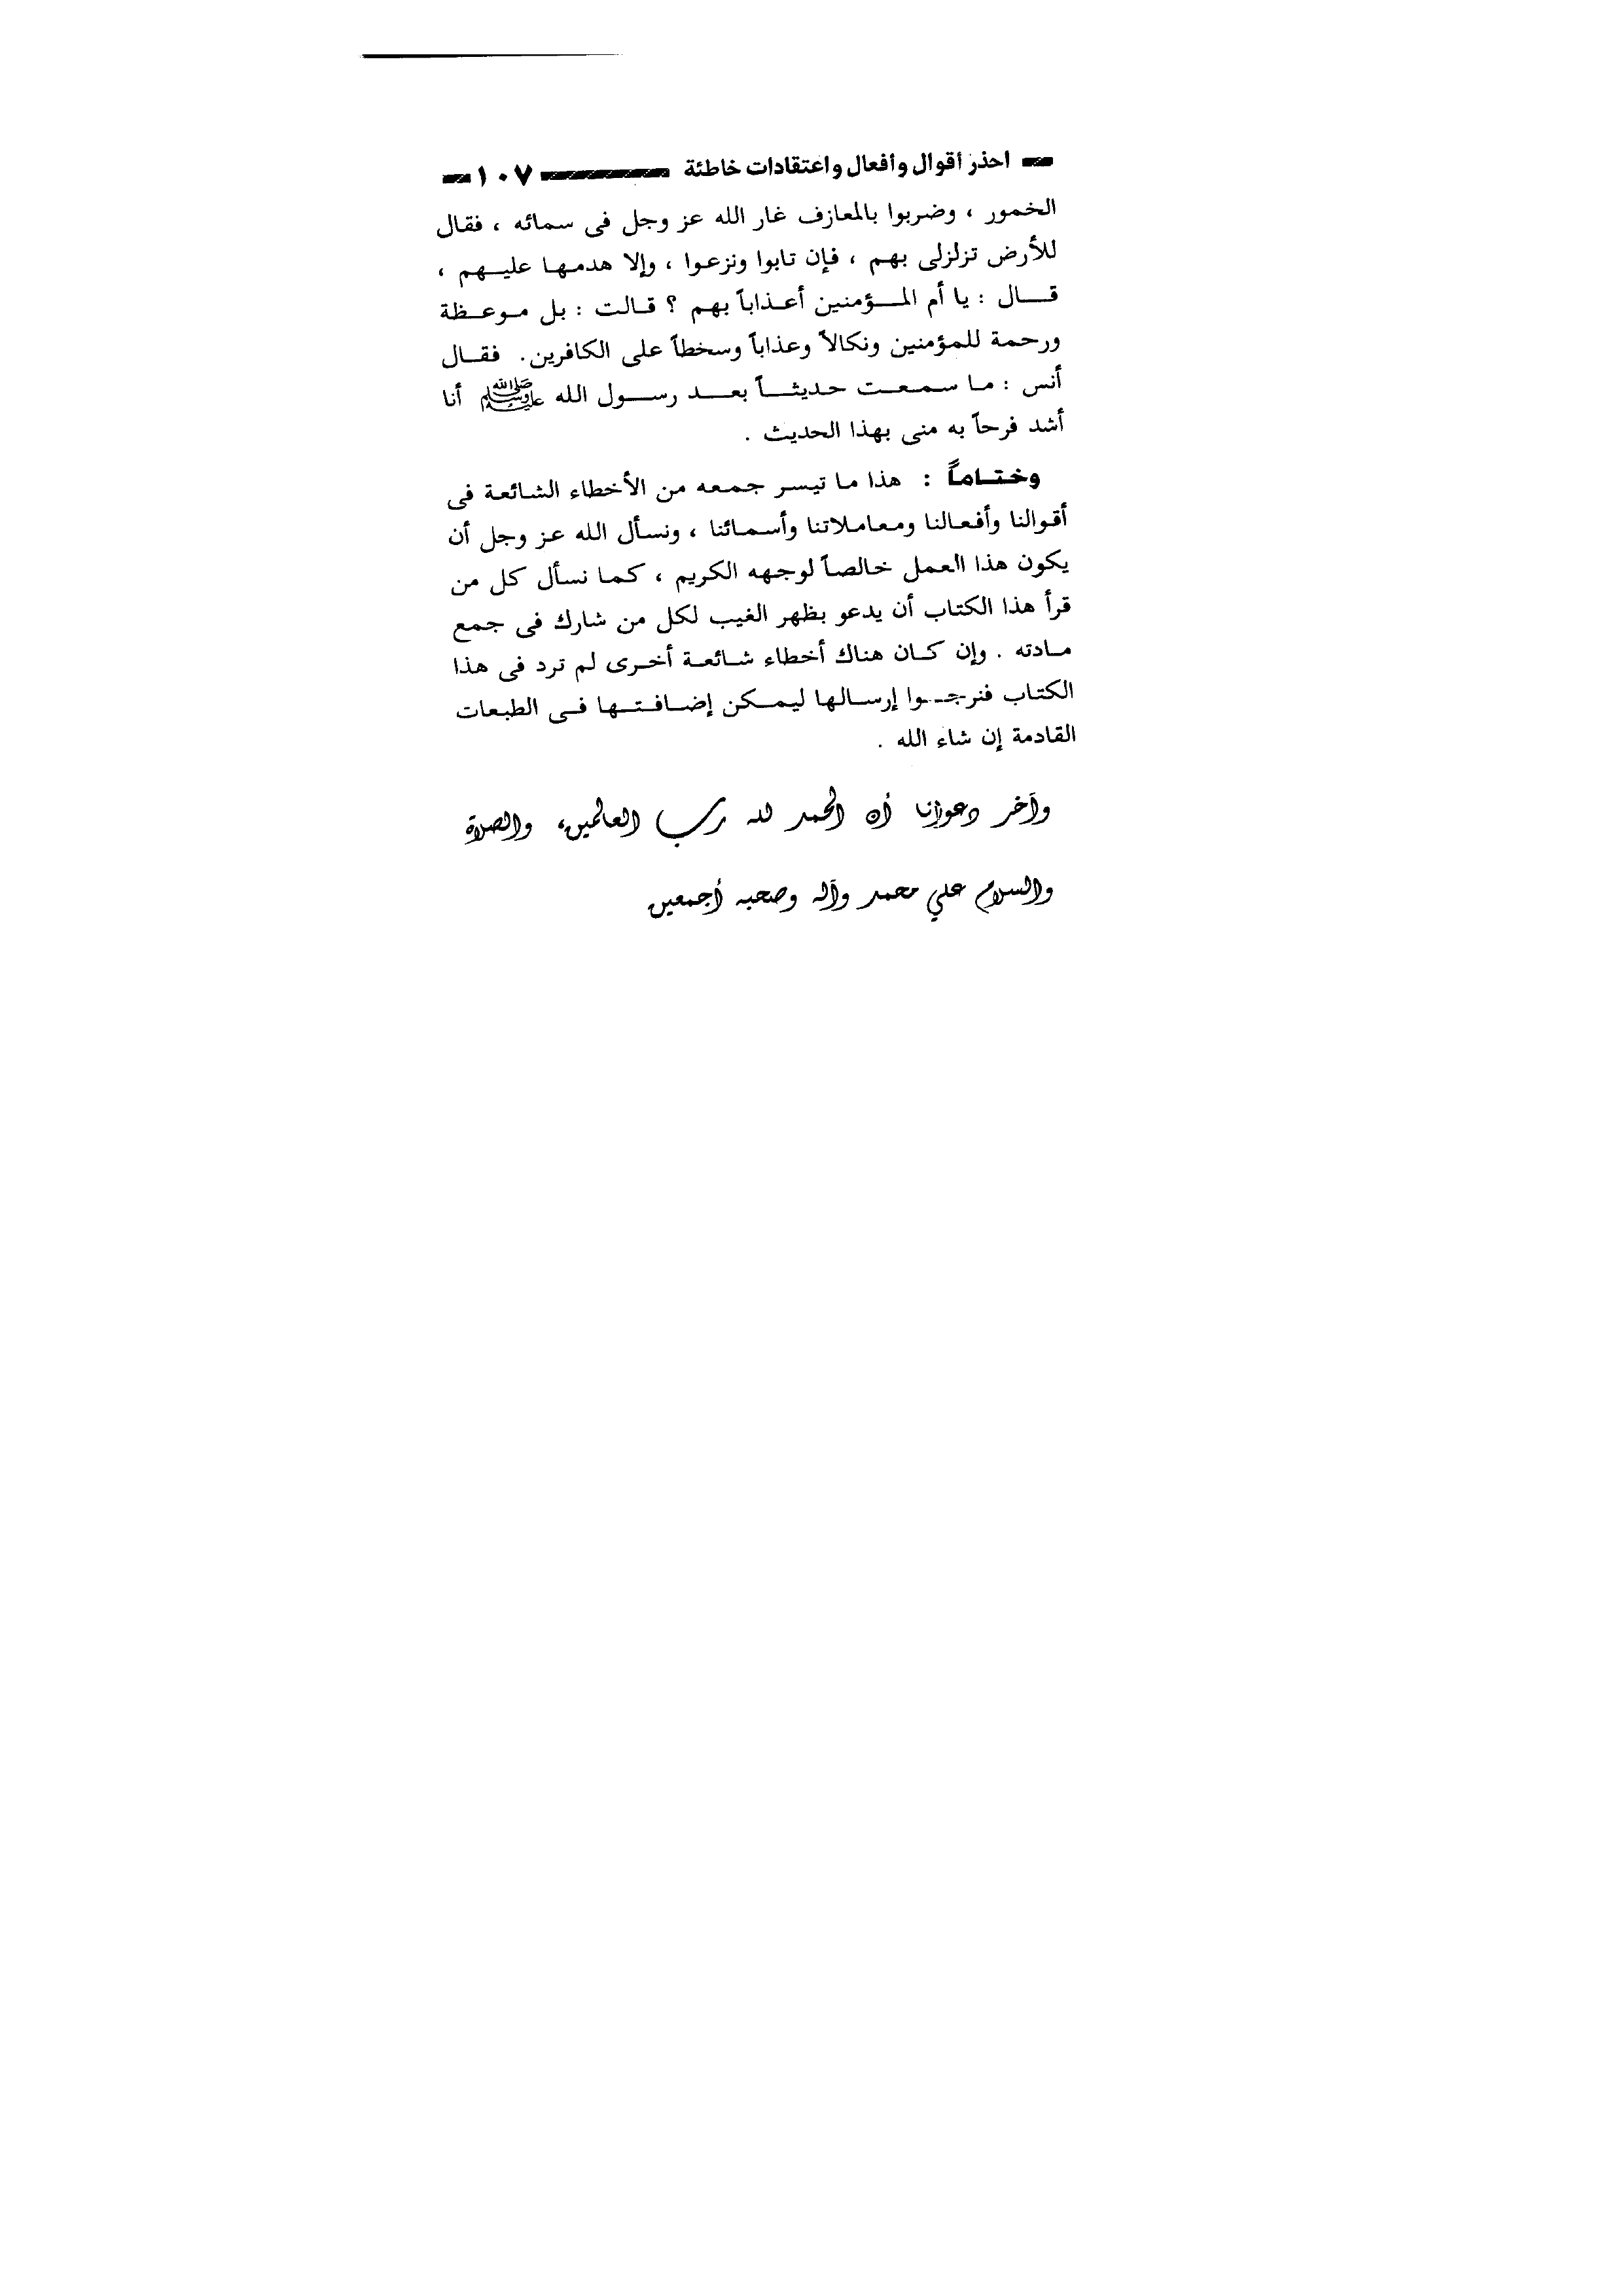 احذر أقوال وأفعال واعتقادات خاطئة ١٠٧
الخمور ، وضربوا بالمعازف غار الله عز وجل فى سمائه ، فقال
للأرض تزلزلى بهم ، فإن تابوا ونزعوا ، وإلا هدمها عليهم ،
قال : يا أم المؤمنين أعذاباً بهم ؟ قالت : بل موعظة
ورحمة للمؤمنين ونكالاً وعذاباً وسخطاً على الكافرين. فقال
أنس : ما سمعت حديثاً بعد رسول الله ﷺ أنا
أشد فرحاً به منى بهذا الحديث .
وختاماً : هذا ما تيسر جمعه من الأخطاء الشائعة فى
أقوالنا وأفعالنا ومعاملاتنا وأسمائنا ، ونسأل الله عز وجل أن
يكون هذا العمل خالصاً لوجهه الكريم ، كما نسأل كل من
قرأ هذا الكتاب أن يدعو بظهر الغيب لكل من شارك فى جمع
مادته . وإن كان هناك أخطاء شائعة أخرى لم ترد فى هذا
الكتاب فنرجوا إرسالها ليمكن إضافتها فى الطبعات
القادمة إن شاء الله .
وآخر دعوانا أن الحمد لله رب العالمين، والصلاة
والسلام علي محمد وآله وصحبه أجمعين